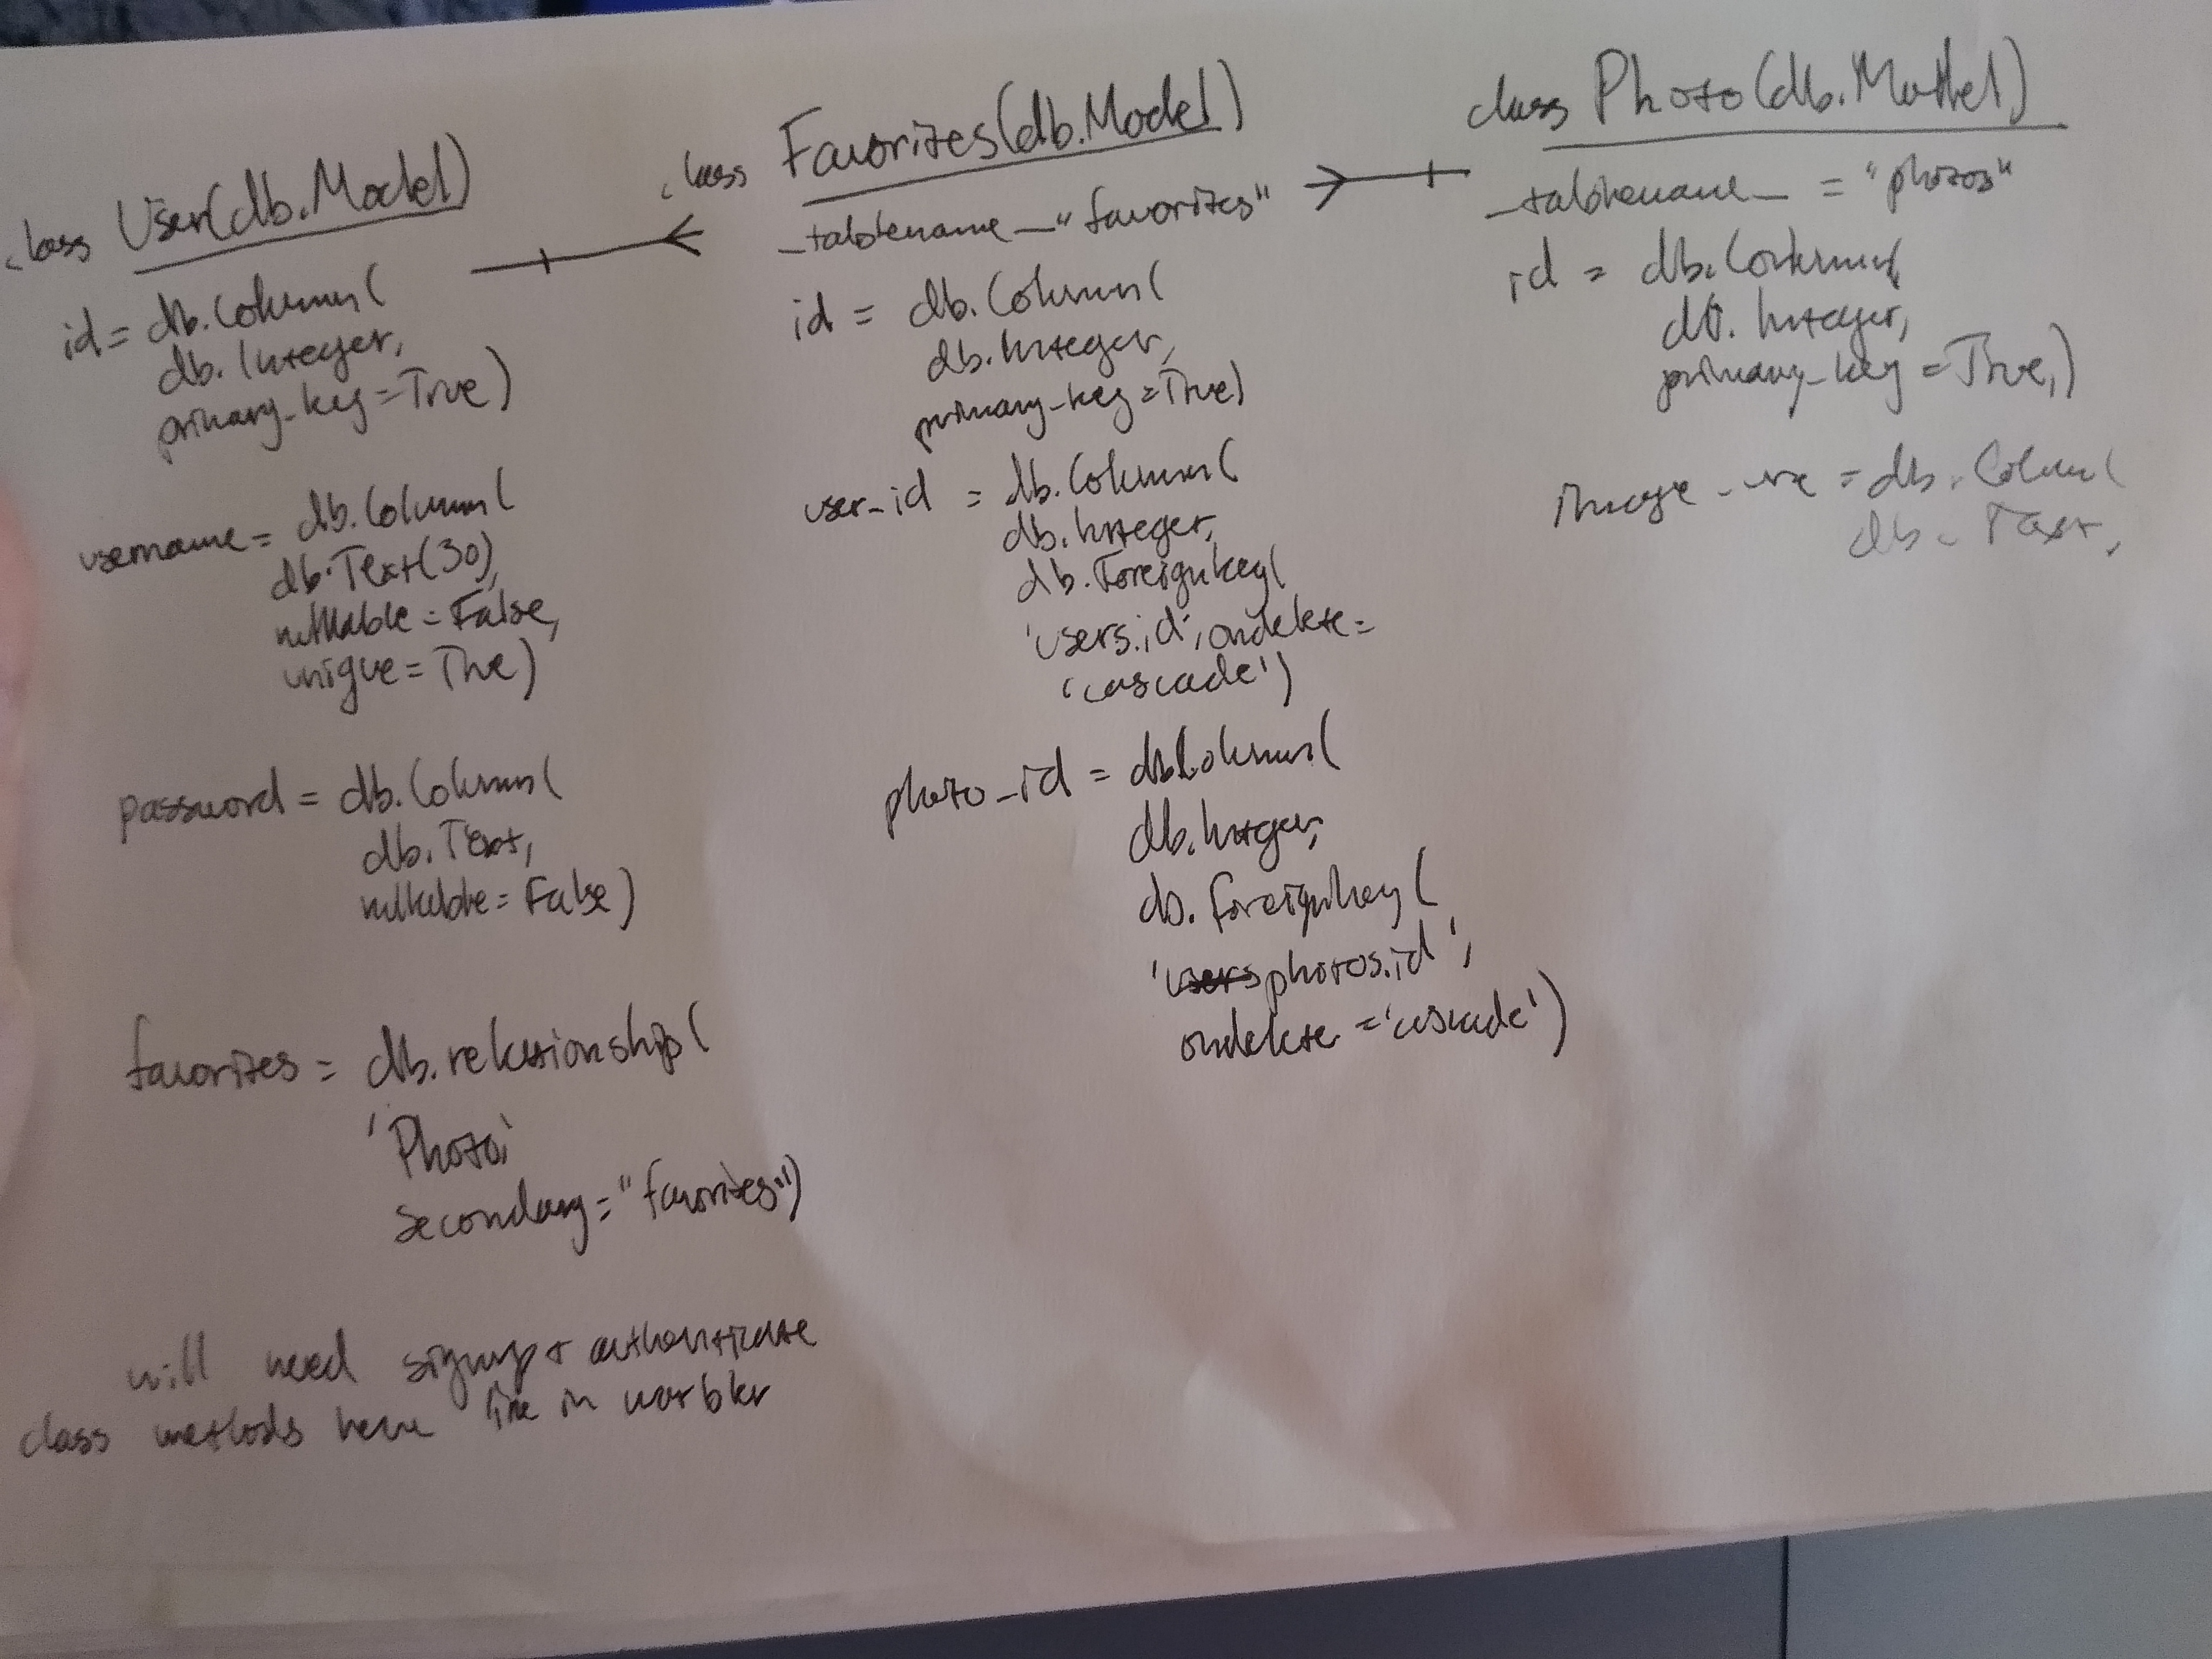 class User(db.Model)
id = db.Column(
db.Integer,
primary_key=True)
username = db.Column(
db.Text(30),
nullable = False,
unique = True)
password = db.Column(
db.Text,
nullable = False)
favorites = db.relationship(
'Photo'
secondary="favorites")
will need signup + authenticate
class methods here like in warbler
class Favorites(db.Model)
_tablename_"favorites"
id = db.Column(
db.Integer,
primary_key=True)
user_id = db.Column(
db.Integer,
db.Foreignkey(
'users.id', ondelete=
'cascade')
photo_id = db.Column(
db.Integer,
db.foreignkey(
'users photos.id',
ondelete ='cascade')
class Photo(db.Model)
_tablename_ = "photos"
id = db.Column(
db.Integer,
primary_key = True,)
= db.Column(
db.Text,